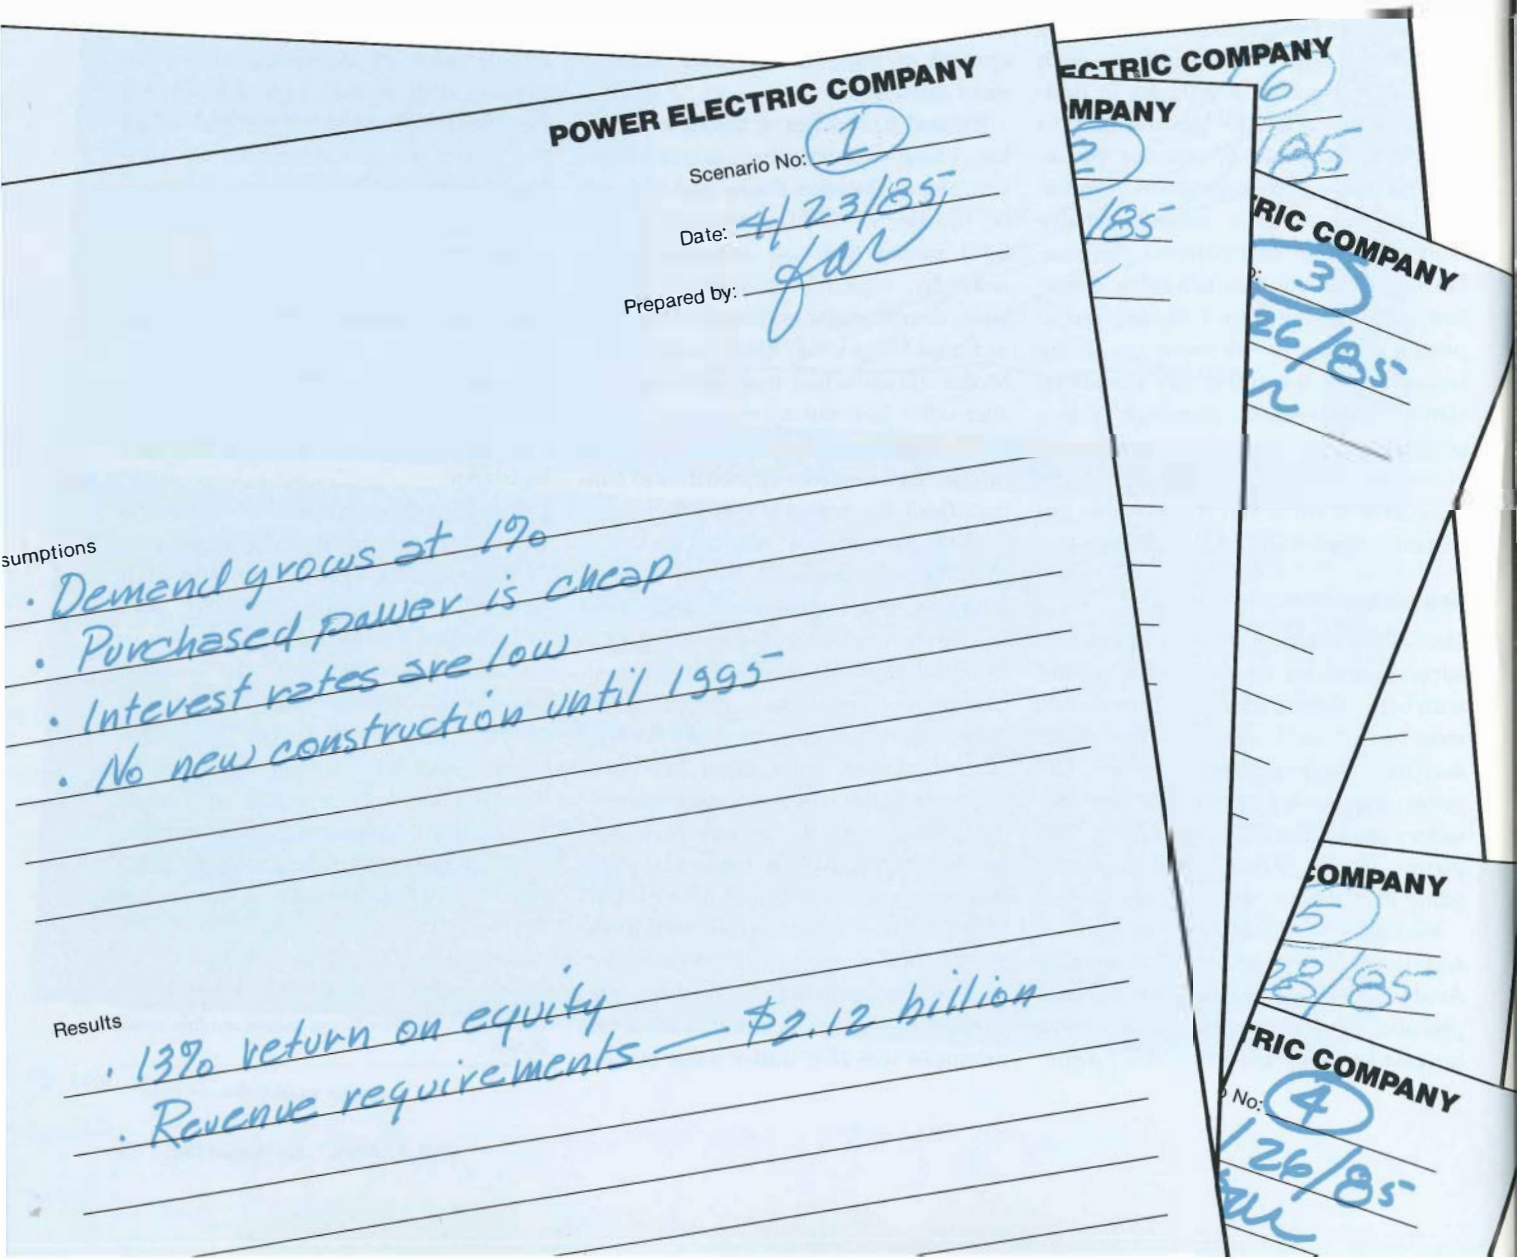 POWER ELECTRIC COMPANY
Scenario No: 1
Date: 4/23/85
Prepared by: far
sumptions
· Demand grows at 1%
· Purchased power is cheap
· Interest rates are low
· No new construction until 1995
Results
· 13% return on equity
· Revenue requirements — $2.12 billion
ECTRIC COMPANY
6
85
MPANY
2
/85
TRIC COMPANY
o: 3
26/85
COMPANY
5
28/85
TRIC COMPANY
o No: 4
/26/85